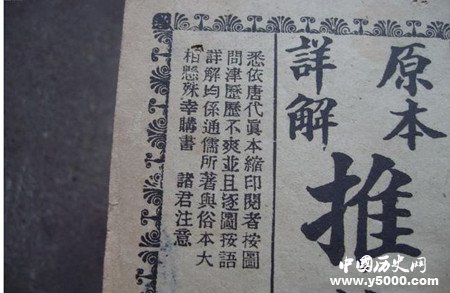 原本
詳解
推
悉依唐代眞本縮印閱者按圖
問津歷歷不爽並且逐圖按語
詳解均係通儒所著與俗本大
相懸殊幸購書 諸君注意
中国历史网
www.y5000.com